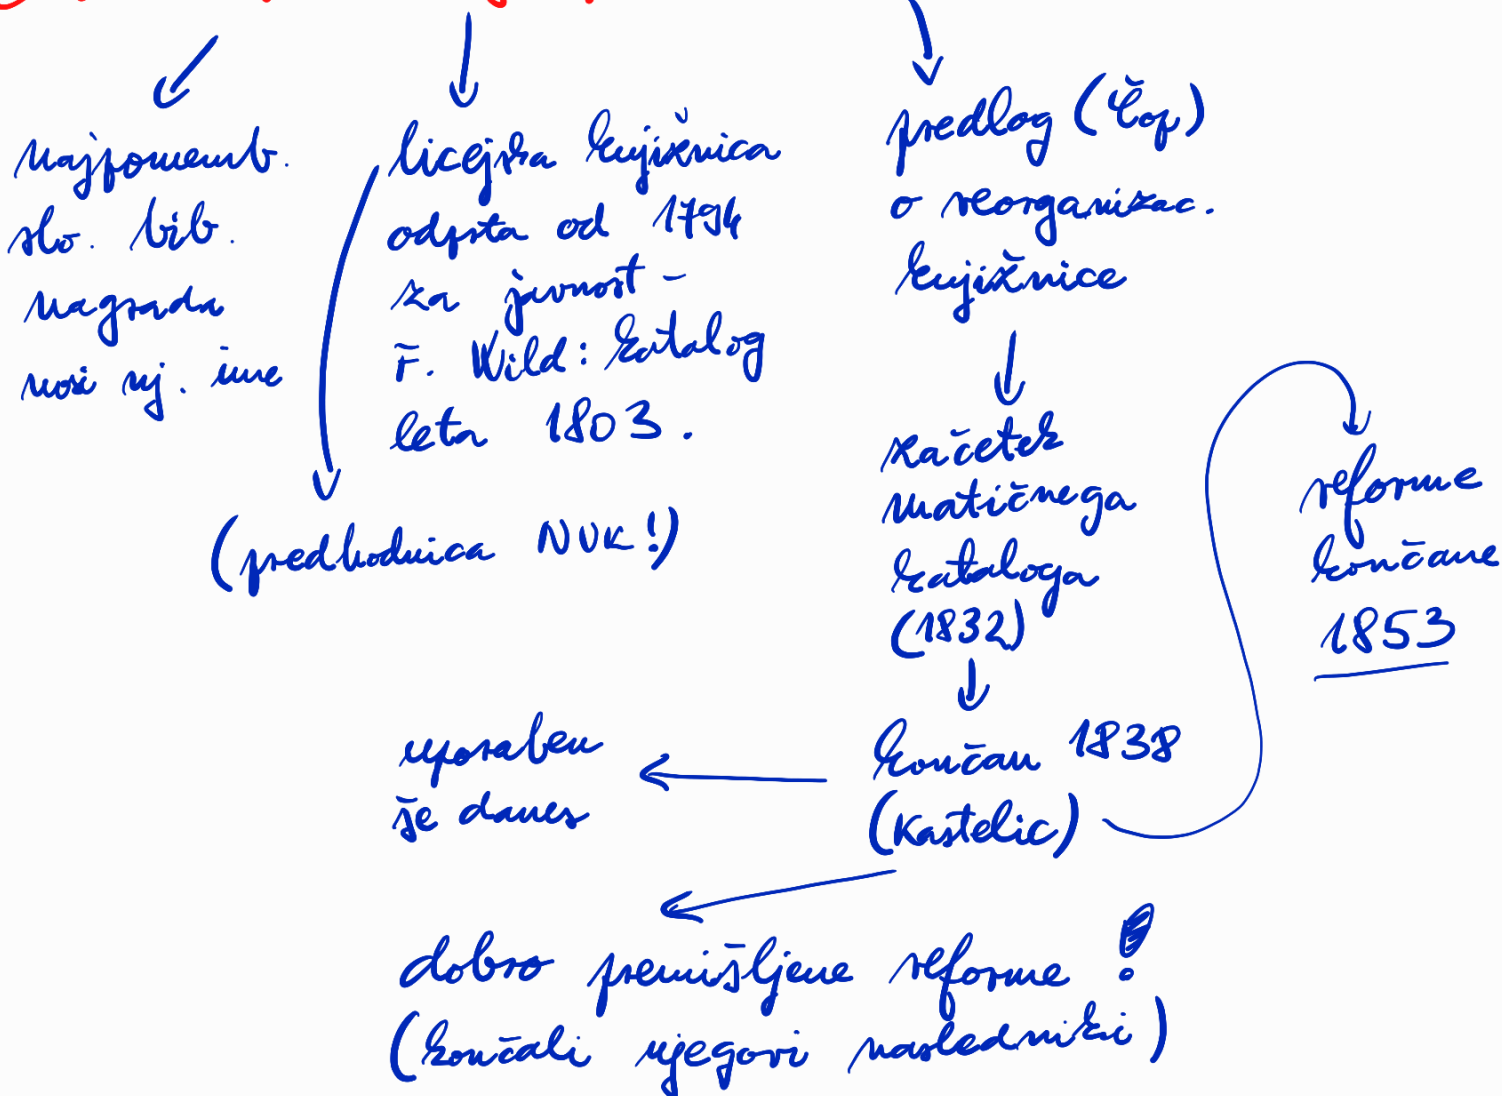 najpomemb.
slo. bib.
nagrada
nosi nj. ime
licejska knjižnica
odprta od 1794
za javnost -
F. Wild: katalog
leta 1803.
(predhodnica NUK!)
predlog (Čop)
o reorganizac.
knjižnice
začetek
matičnega
kataloga
(1832)
končan 1838
(Kastelic)
reforme
končane
1853
uporaben
še danes
dobro premišljene reforme!
(končali njegovi nasledniki)